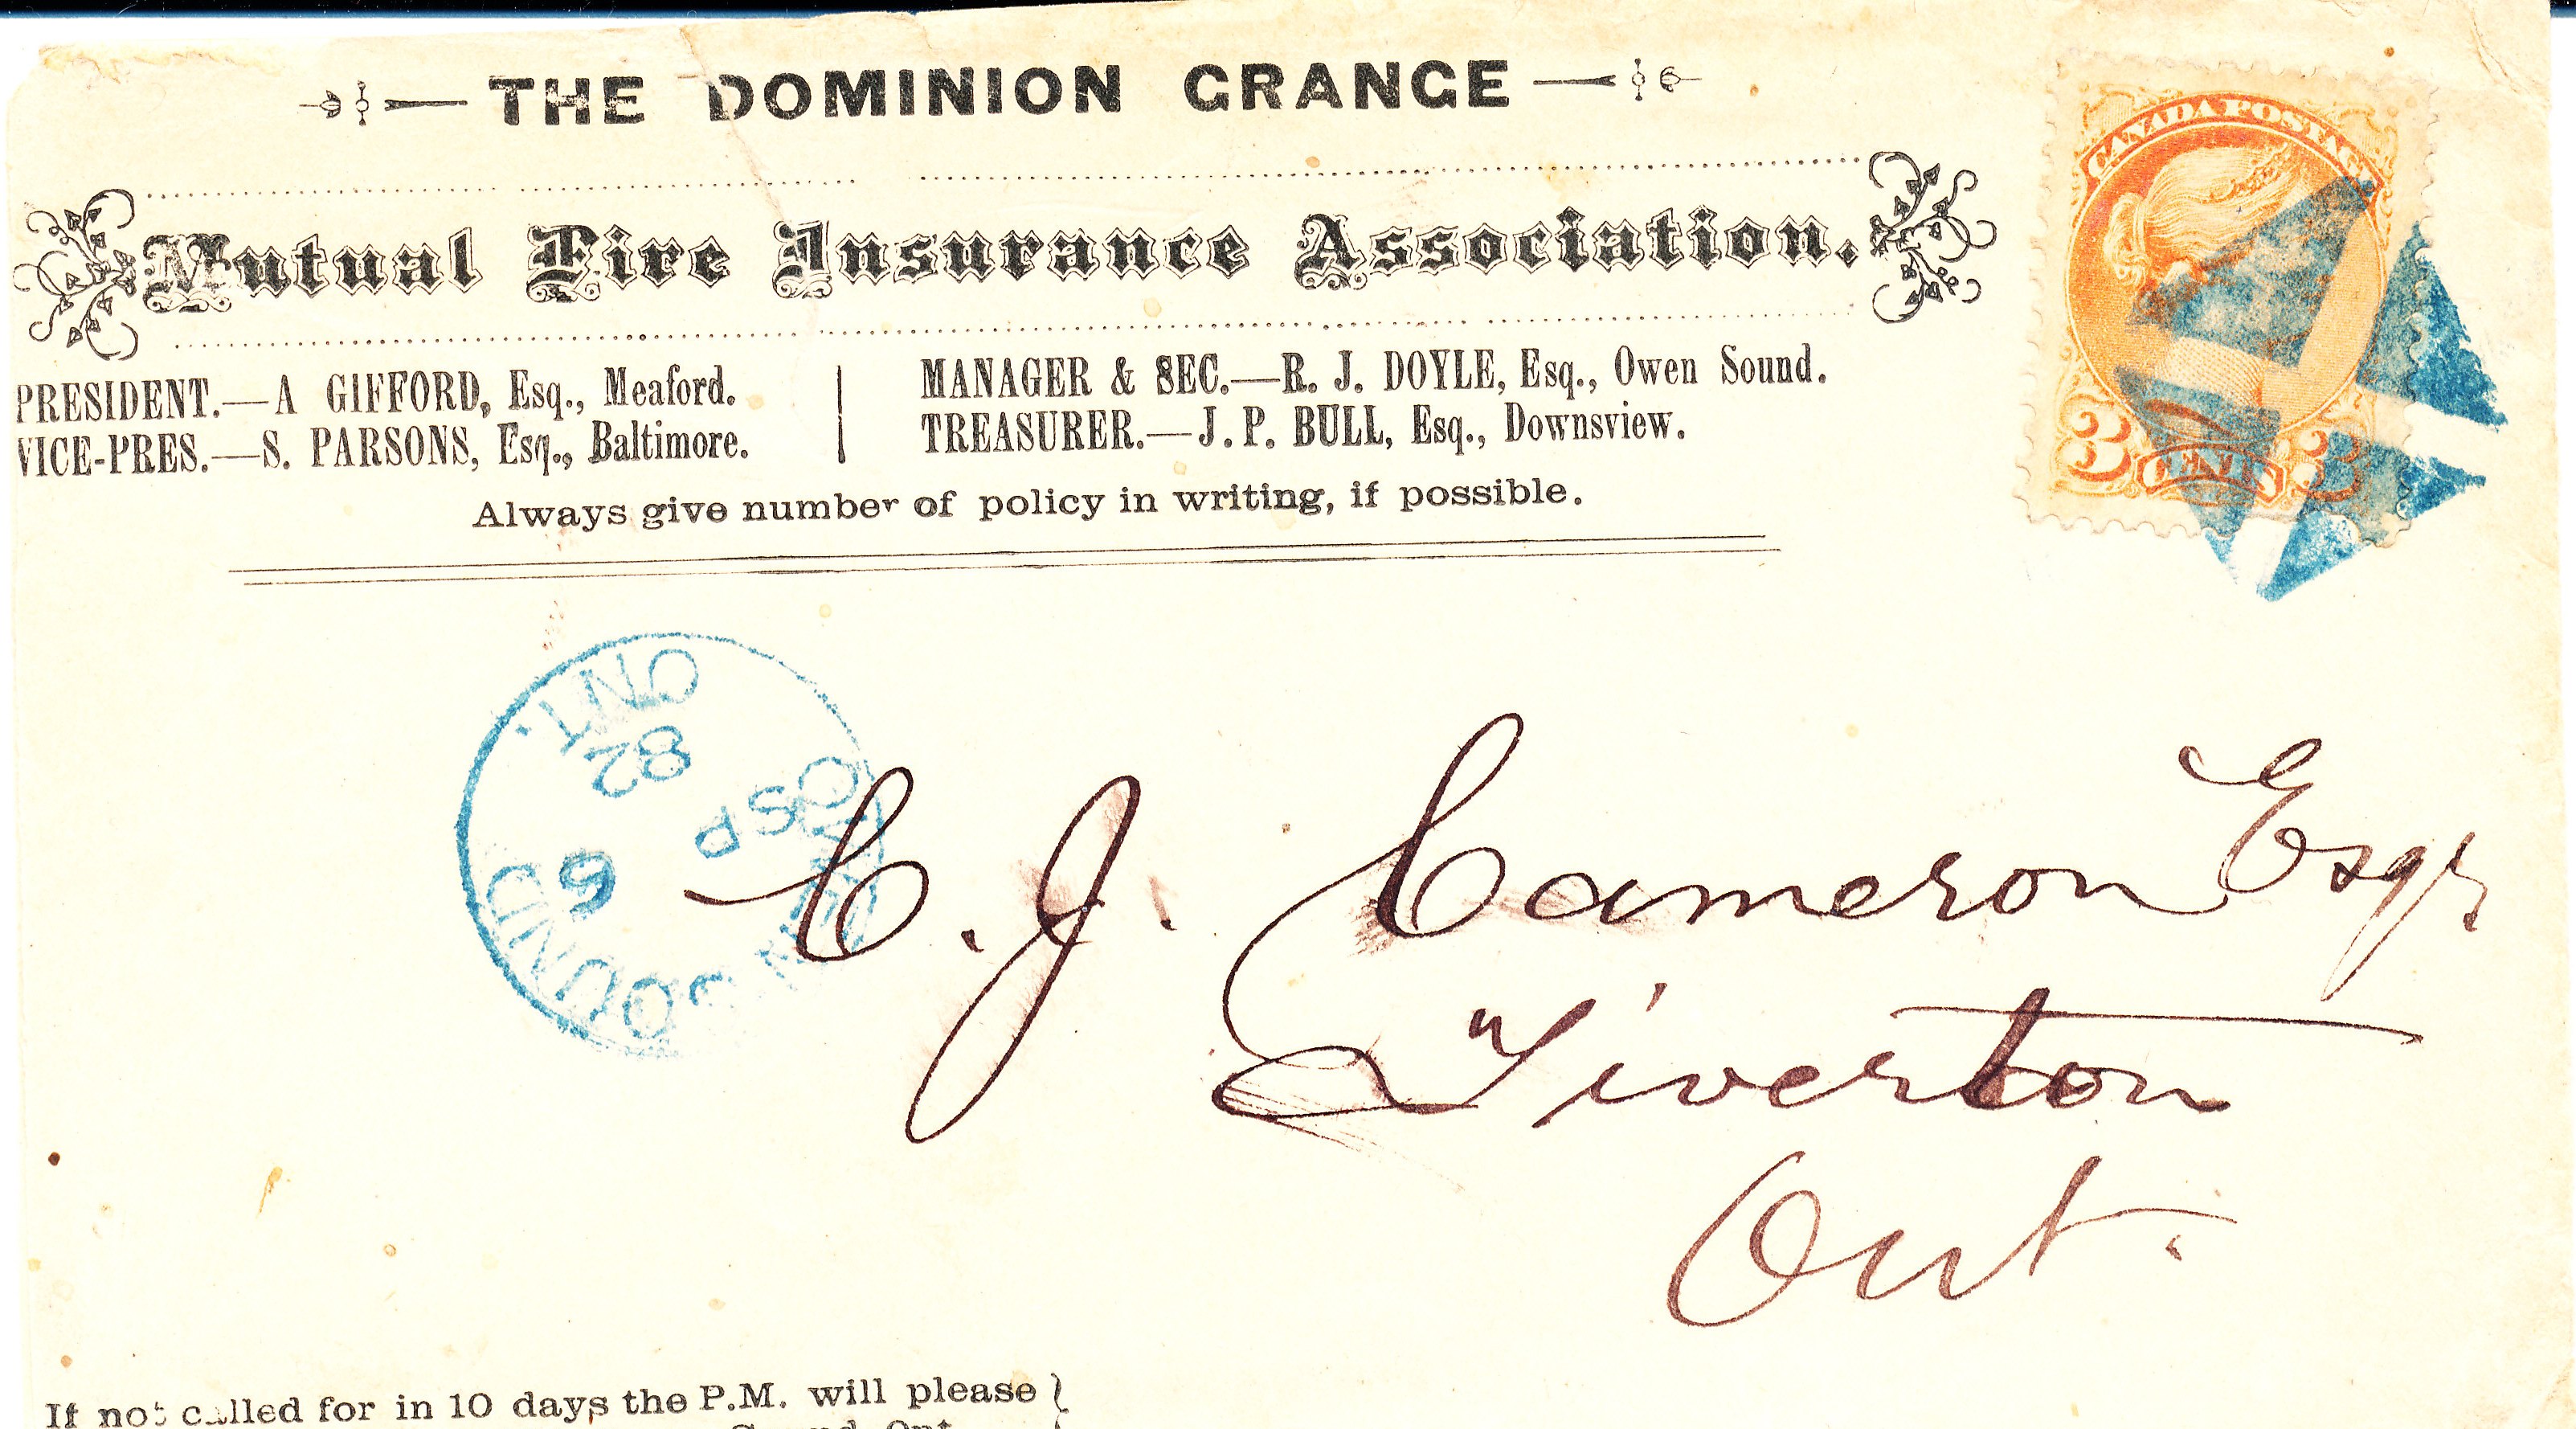 THE DOMINION GRANGE
Mutual Fire Insurance Association.
PRESIDENT.—A GIFFORD, Esq., Meaford.
VICE-PRES.—S. PARSONS, Esq., Baltimore.
MANAGER & SEC.—R. J. DOYLE, Esq., Owen Sound.
TREASURER.—J. P. BULL, Esq., Downsview.
Always give number of policy in writing, if possible.
CANADA POSTAGE
3 CENTS 3
OWEN SOUND
SP 6
82
ONT.
C. J. Cameron Esqr
Tiverton
Ont.
If not called for in 10 days the P.M. will please
Sound Ont